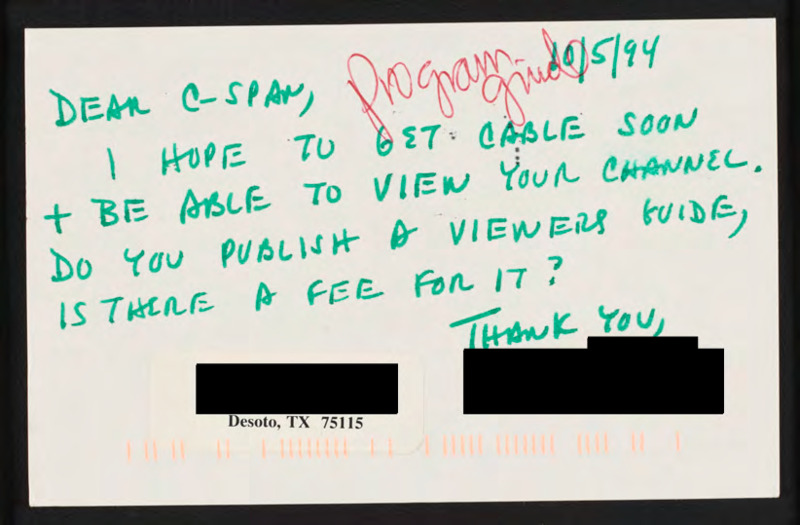 10/5/94
program
guide
DEAR C-SPAN,
I HOPE TO GET CABLE SOON
+ BE ABLE TO VIEW YOUR CHANNEL.
DO YOU PUBLISH A VIEWERS GUIDE,
IS THERE A FEE FOR IT?
THANK YOU,
Desoto, TX 75115